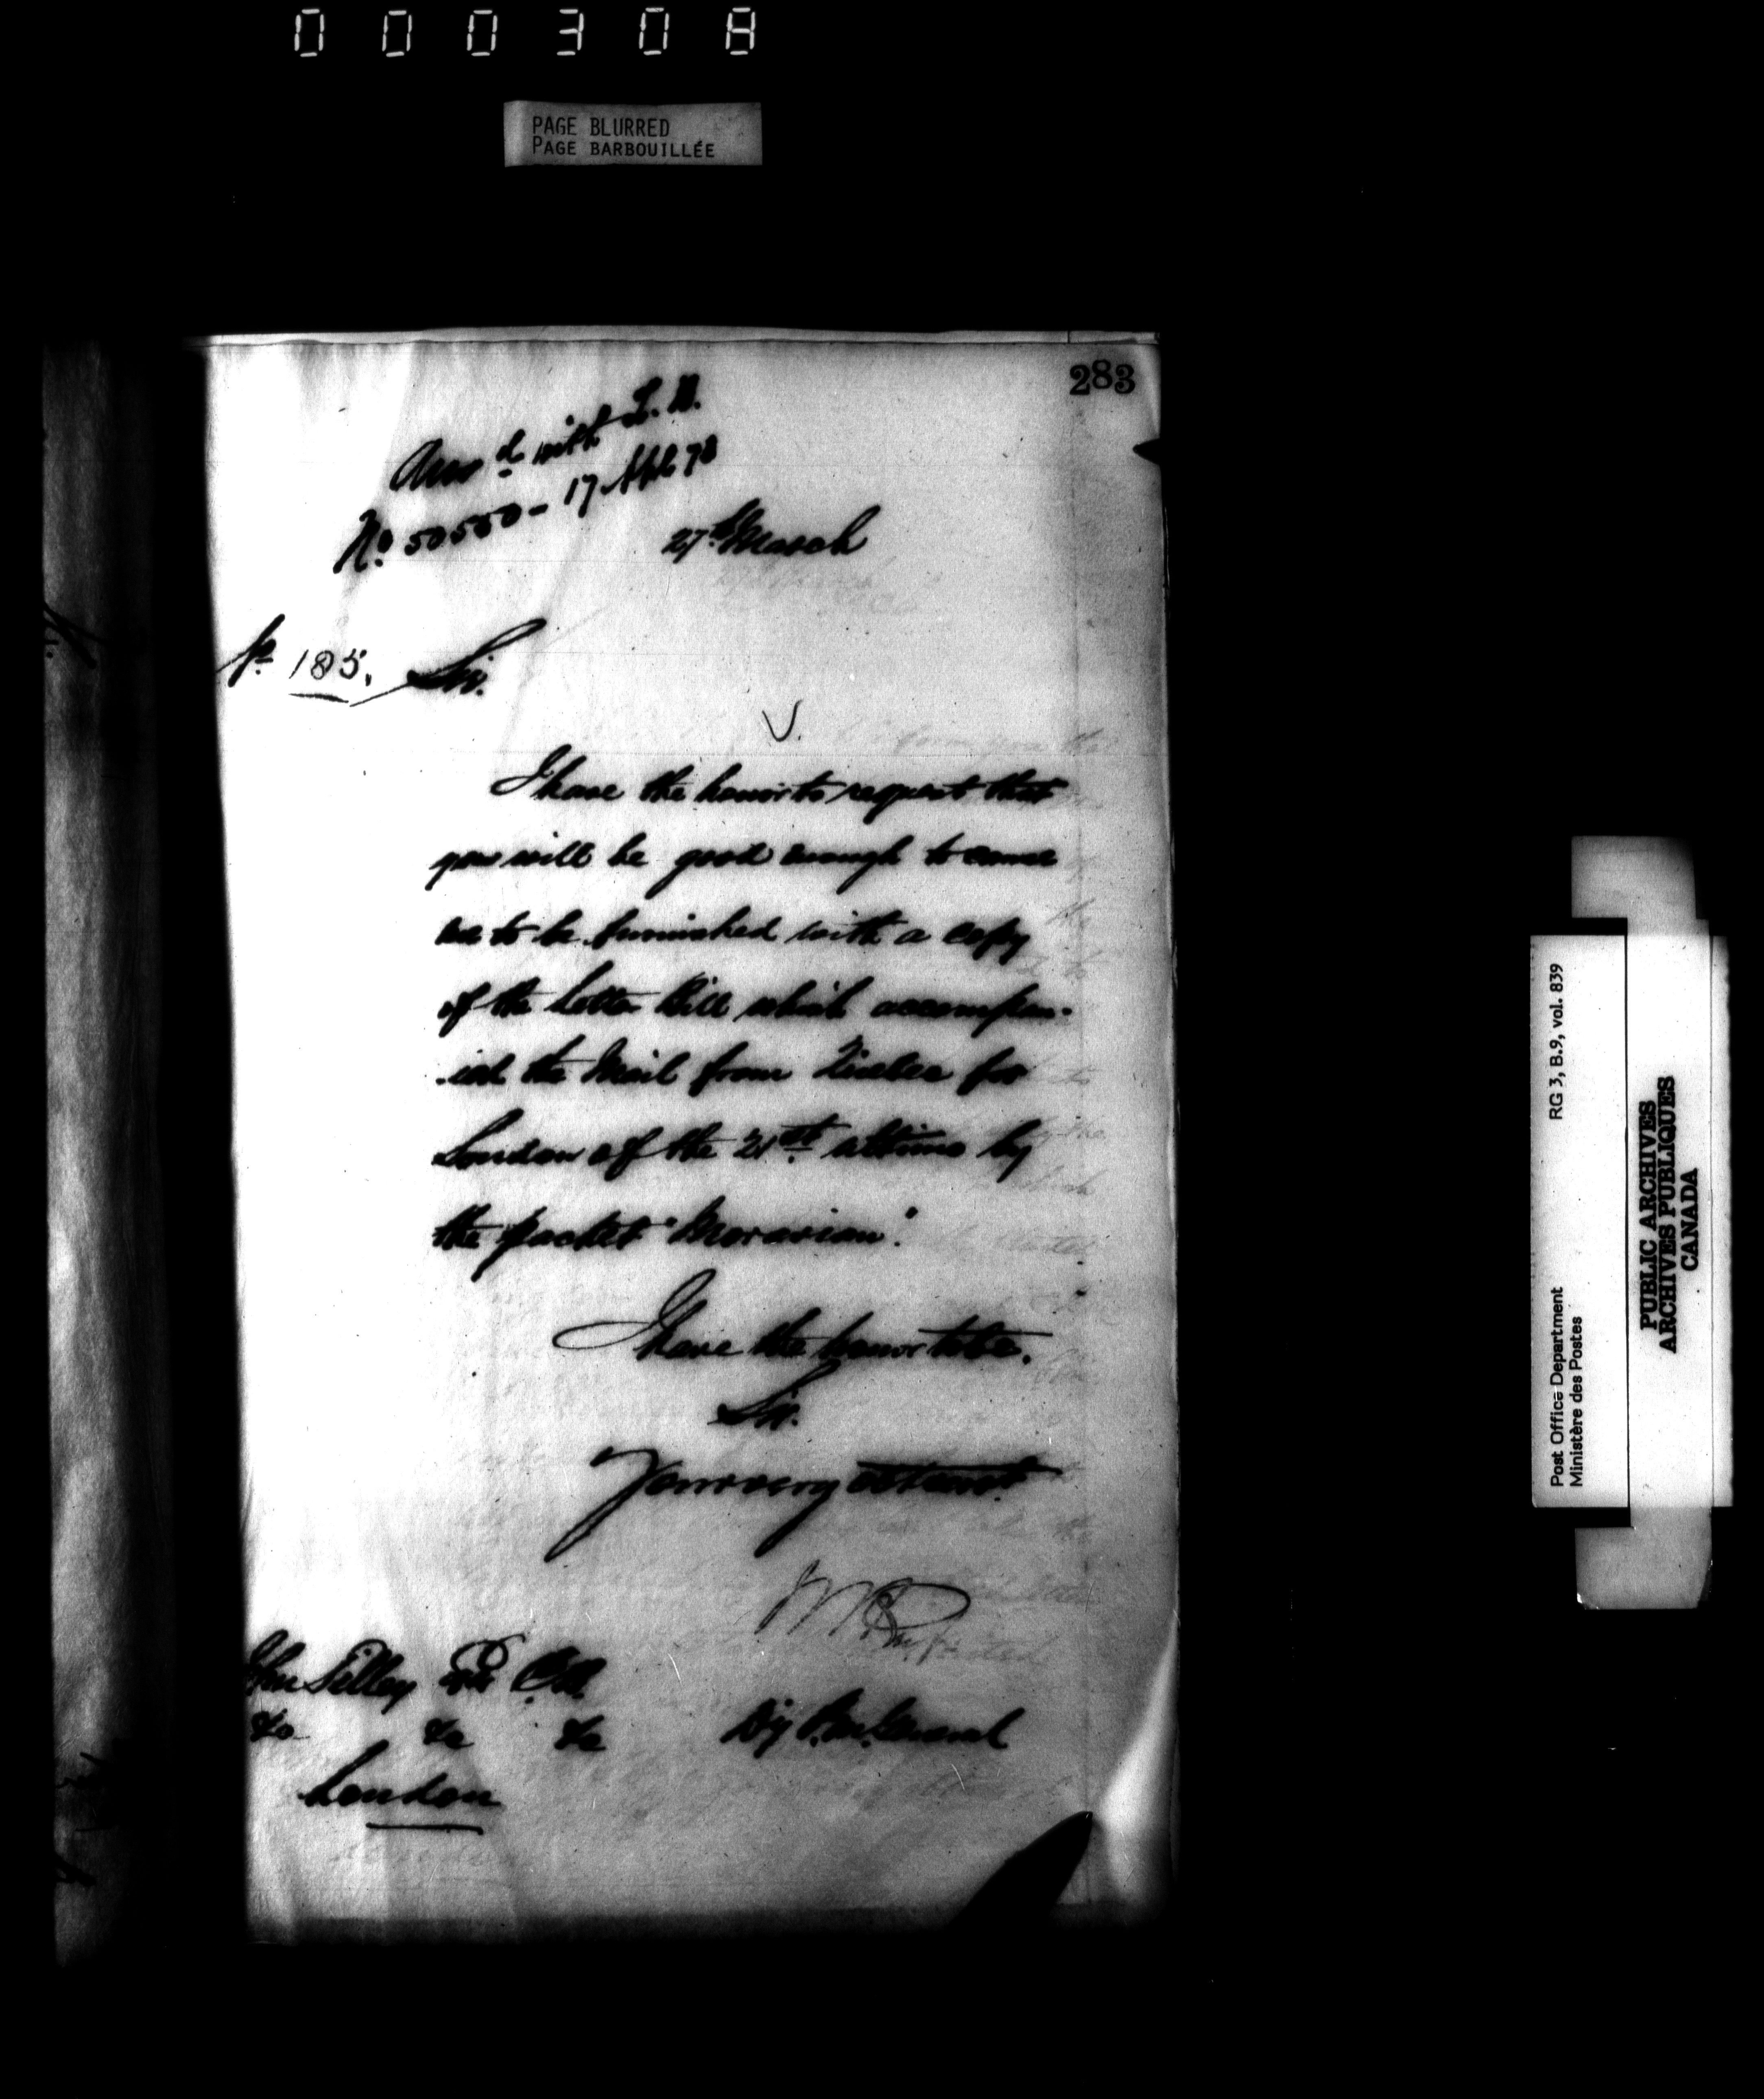 000308
PAGE BLURRED
PAGE BARBOUILLÉE
283
Answd with L.B.
No. 50550 - 17 Apl 78
27th March
p 185. Sir.
I have the honor to request that
you will be good enough to cause
me to be furnished with a copy
of the Letter Bill which accompan-
-ied the Mail from Quebec for
London of the 21st ultimo by
the packet "Moravian".
I have the honor to be.
Sir.
Your very obt servt.
John Tilley Esqr C.B.
&c &c &c
Dy P.M. General
London
Post Office Department RG 3, B.9, vol. 839
Ministère des Postes
PUBLIC ARCHIVES
ARCHIVES PUBLIQUES
CANADA